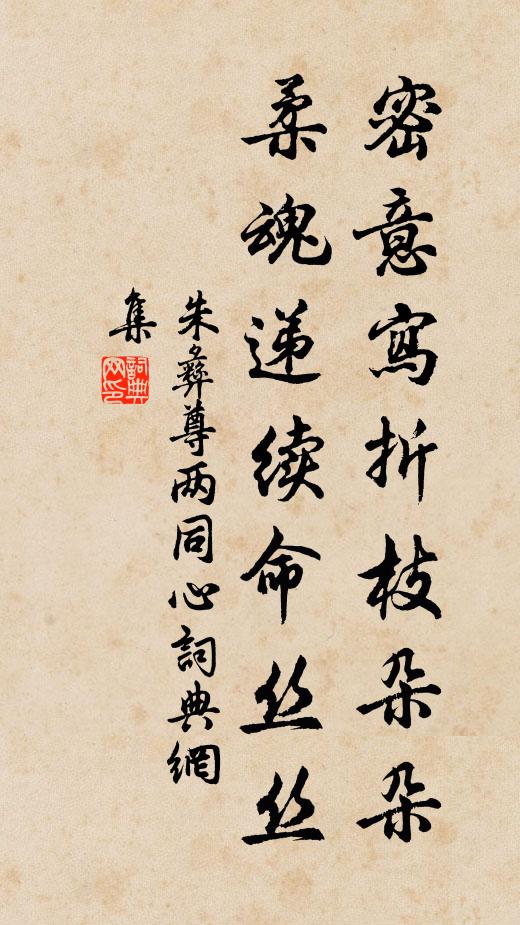 密意寫折枝朵朵
柔魂递续命丝丝
朱彝尊两同心詞典網
集
詞典网印